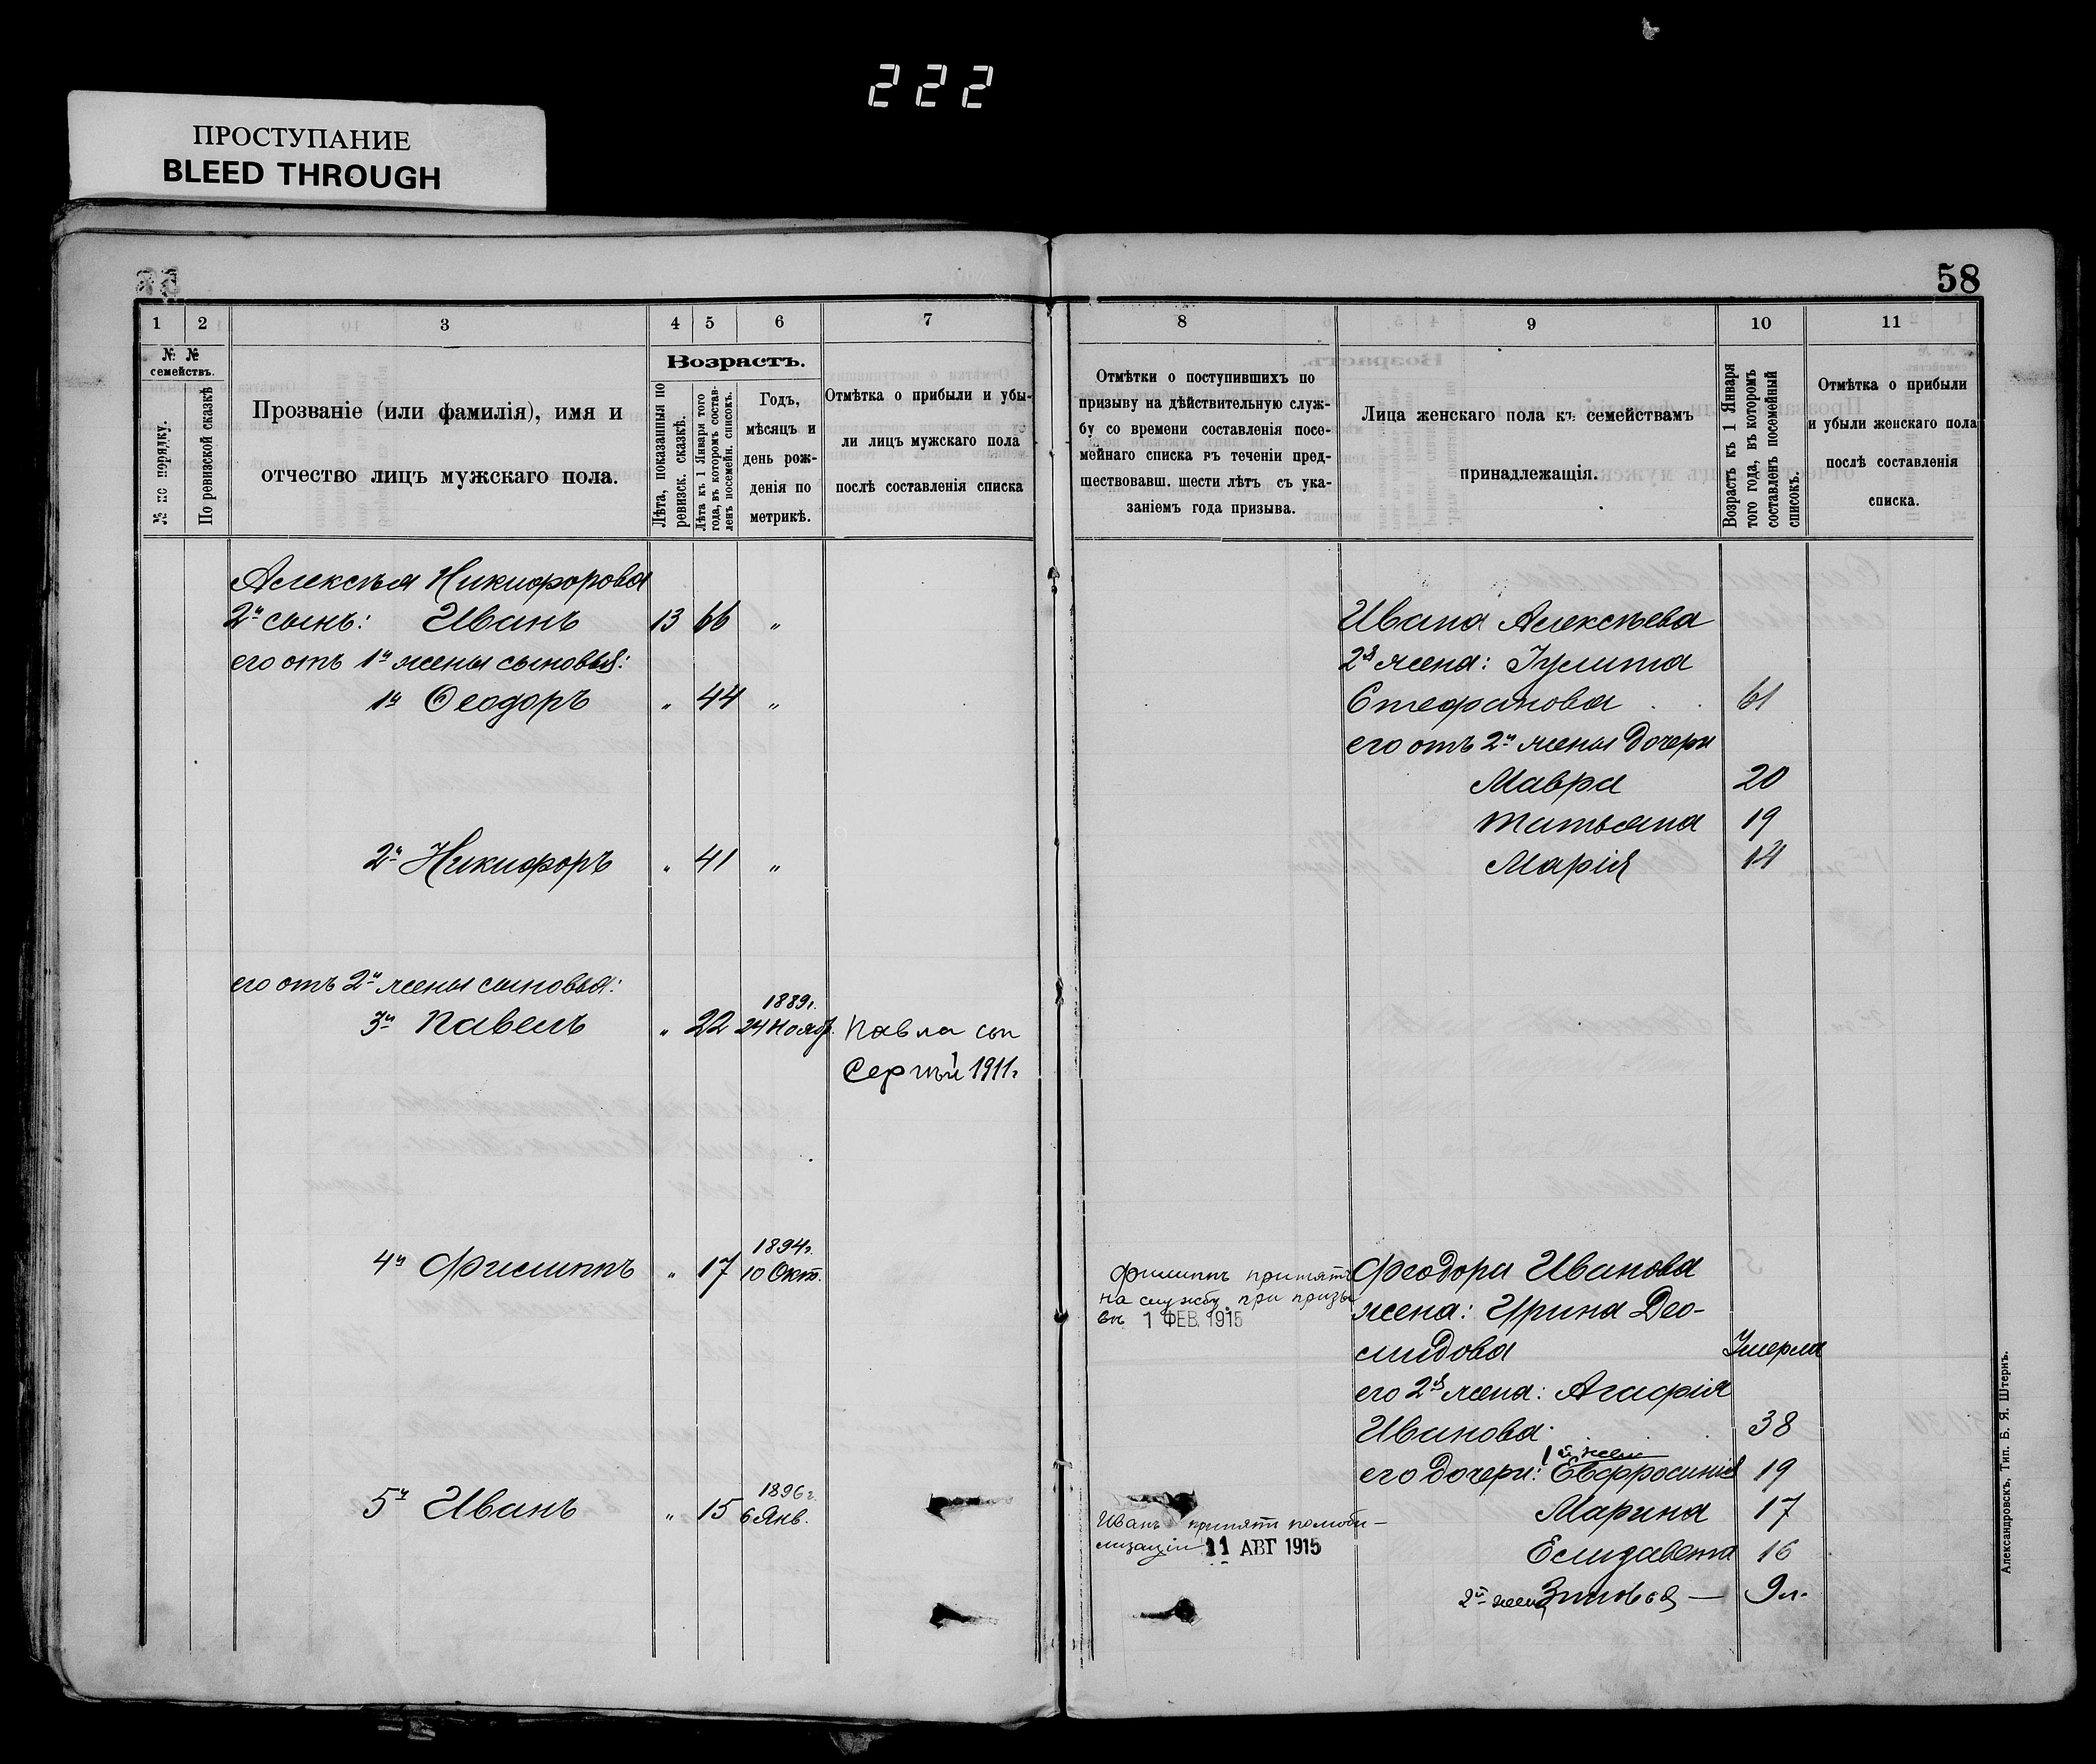 222
ПРОСТУПАНИЕ
BLEED THROUGH
58
1 2 3 4 5 6 7
№ № семействъ.
№ по порядку.
По ревизской сказкѣ
Прозваніе (или фамилія), имя и
отчество лицъ мужскаго пола.
Возрастъ.
Лѣта, показанныя по
ревизск. сказкѣ.
Лѣта къ 1 Января того
года, въ которомъ состав-
ленъ посемейн. списокъ.
Годъ,
мѣсяцъ и
день рож-
денія по
метрикѣ.
Отмѣтка о прибыли и убы-
ли лицъ мужскаго пола
послѣ составленія списка
Алексѣя Никифорова
2й сынъ: Иванъ 13 66 "
его отъ 1й жены сыновья:
1й Ѳеодоръ " 44 "
2й Никифоръ " 41 "
его отъ 2й жены сыновья:
3й Павелъ " 22 1889г. 24 Нояб. Павла сын
Сергѣй 1911г
4й Филиппъ " 17 1894г. 10 Окт.
5й Иванъ " 15 1896г. 6 Янв.
8 9 10 11
Отмѣтки о поступившихъ по
призыву на дѣйствительную служ-
бу со времени составленія посе-
мейнаго списка въ теченіи пред-
шествовавш. шести лѣтъ съ ука-
заніемъ года призыва.
Лица женскаго пола къ семействамъ
принадлежащія.
Возрастъ къ 1 Января
того года, въ которомъ
составленъ посемейный
списокъ.
Отмѣтка о прибыли
и убыли женскаго пола
послѣ составленія
списка.
Ивана Алексѣева
2я жена: Іулита
Стефанова 61
его отъ 2й жены дочери
Мавра 20
Татьяна 19
Марія 14
Филиппъ принятъ
на службу при призы
вѣ 1 ФЕВ. 1915
Феодора Иванова
жена: Ирина Део-
мидова Умерла
его 2я жена: Агафія
Иванова 38
1й жены
его дочери: Евфросинія 19
Марина 17
Елизавета 16
2й жены Зиновья — 9 л.
Иванъ принятъ по моби-
лизаціи 11 АВГ 1915
Александровскъ, Тип. Б. Я. Штернъ.